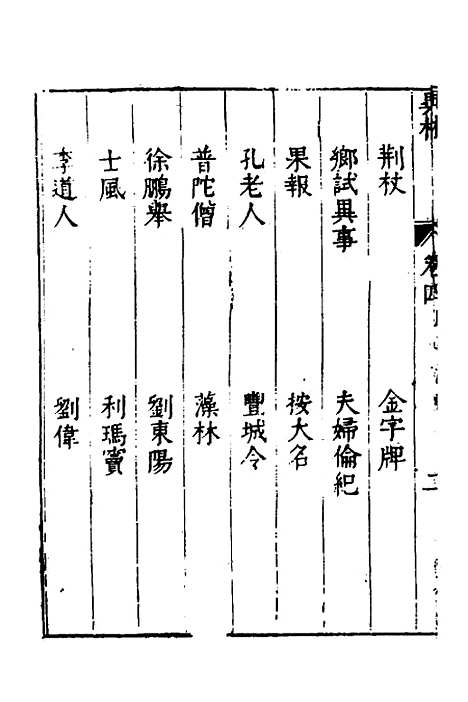 荆杖　金字牌
鄉試異事　夫婦倫紀
果報　按大名
孔老人　豐城令
普陀僧　藻林
徐鵬舉　劉東陽
士風　利瑪竇
李道人　劉偉
卷四
二